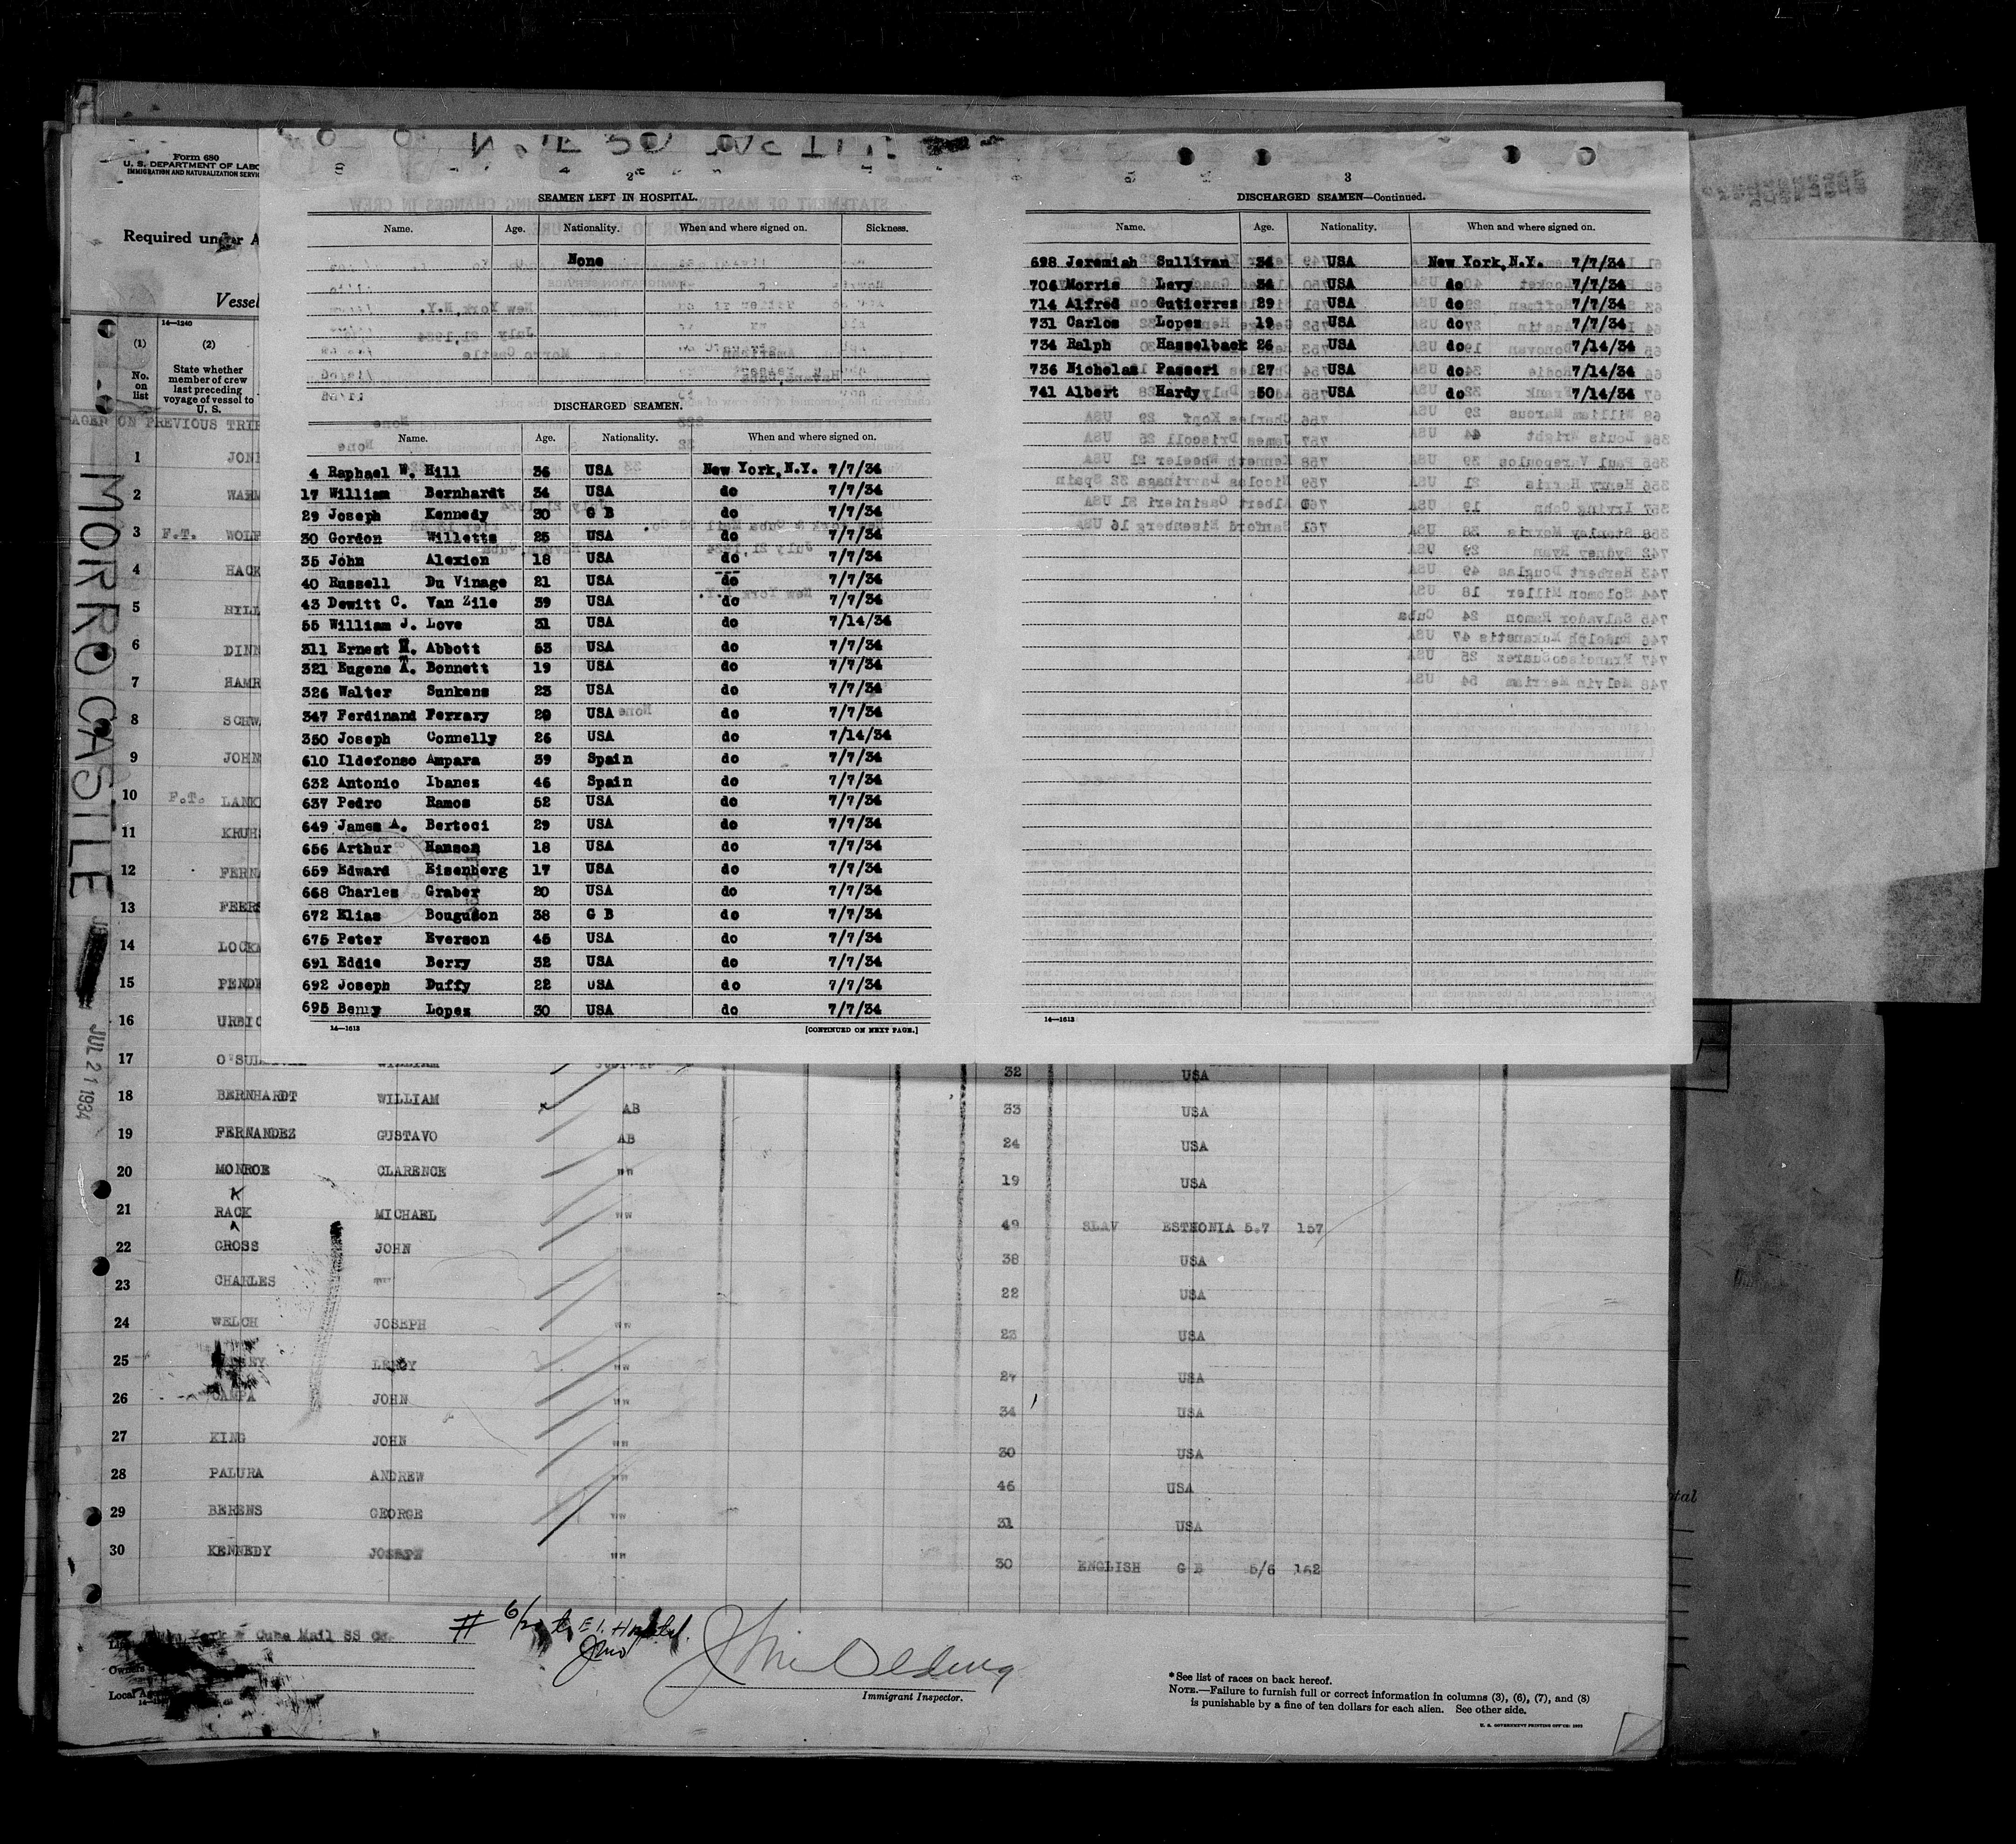 Form 680
U. S. DEPARTMENT OF LABO
IMMIGRATION AND NATURALIZATION SERVIC
Required under A
Vessel
14—1240
(1) (2)
No. on list
State whether member of crew last preceding voyage of vessel to U. S.
AGED ON PREVIOUS TRIP
1 JON
2 WARM
3 F.T. WOLF
4 HACK
5 HILL
6 DINN
7 HAMR
8 SCHW
9 JOHN
10 F.T. LANK
11 KRUH
12 FERN
13 FEER
14 LOCK
15 PEND
16 URBIC
MORRO CASTLE
JUL 21 1934
2
SEAMEN LEFT IN HOSPITAL.
Name. Age. Nationality. When and where signed on. Sickness.
None
DISCHARGED SEAMEN.
Name. Age. Nationality. When and where signed on.
4 Raphael W. Hill 36 USA New York,N.Y. 7/7/34
17 William Bernhardt 34 USA do 7/7/34
29 Joseph Kennedy 30 G B do 7/7/34
30 Gordon Willetts 25 USA do 7/7/34
35 John Alexion 18 USA do 7/7/34
40 Russell Du Vinage 21 USA do 7/7/34
43 Dewitt C. Van Zile 39 USA do 7/7/34
55 William J. Love 31 USA do 7/14/34
311 Ernest H. Abbott 53 USA do 7/7/34
321 Eugene A. Bonnett 19 USA do 7/7/34
326 Walter Sunkens 23 USA do 7/7/34
347 Ferdinand Ferrary 29 USA do 7/7/34
350 Joseph Connelly 26 USA do 7/14/34
610 Ildefonso Ampara 39 Spain do 7/7/34
632 Antonio Ibanes 46 Spain do 7/7/34
637 Pedro Ramos 52 USA do 7/7/34
649 James A. Bertoci 29 USA do 7/7/34
656 Arthur Hanson 18 USA do 7/7/34
659 Edward Eisenberg 17 USA do 7/7/34
668 Charles Graber 20 USA do 7/7/34
672 Elias Bouguson 38 G B do 7/7/34
675 Peter Everson 45 USA do 7/7/34
691 Eddie Berry 32 USA do 7/7/34
692 Joseph Duffy 22 USA do 7/7/34
695 Benny Lopez 30 USA do 7/7/34
14—1613 [CONTINUED ON NEXT PAGE.]
3
DISCHARGED SEAMEN—Continued.
Name. Age. Nationality. When and where signed on.
698 Jeremiah Sullivan 34 USA New York,N.Y. 7/7/34
706 Morris Levy 34 USA do 7/7/34
714 Alfred Gutierres 29 USA do 7/7/34
731 Carlos Lopez 19 USA do 7/7/34
734 Ralph Hasselback 26 USA do 7/14/34
736 Nicholas Passeri 27 USA do 7/14/34
741 Albert Hardy 50 USA do 7/14/34
14—1613
17 O'SULLIVAN WILLIAM 32 USA
18 BERNHARDT WILLIAM AB 33 USA
19 FERNANDEZ GUSTAVO AB 24 USA
20 MONROE CLARENCE "" 19 USA
21 RACK MICHAEL "" 49 SLAV ESTHONIA 5.7 157
22 GROSS JOHN 38 USA
23 CHARLES "" 22 USA
24 WELCH JOSEPH "" 23 USA
25 LEROY "" 27 USA
26 CAMPA JOHN "" 34 USA
27 KING JOHN "" 30 USA
28 PALURA ANDREW "" 46 USA
29 BERENS GEORGE "" 31 USA
30 KENNEDY JOSEPH "" 30 ENGLISH G B 5/6 152
York & Cuba Mail SS Co.
Owners
Local Ag
# E I. Hospital.
Immigrant Inspector.
*See list of races on back hereof.
NOTE.—Failure to furnish full or correct information in columns (3), (6), (7), and (8)
is punishable by a fine of ten dollars for each alien. See other side.
U. S. GOVERNMENT PRINTING OFFICE: